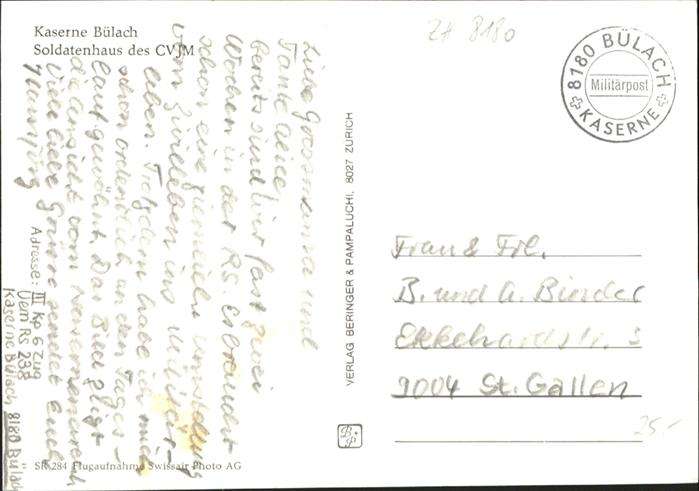 Kaserne Bülach
Soldatenhaus des CVJM
ZH 8180
8180 BÜLACH
Militärpost
KASERNE
Liebe Grossmama und
Tante Alice
bereits sind wir fast zwei
Wochen in der RS. Es braucht
schon eine ziemliche Umstellung
vom Zivilleben ins Militär-
leben. Trotzdem habe ich mich
schon ordentlich an den Tages-
lauf gewöhnt. Das Bild zeigt
die Ansicht vom Kasernenareal
Viele liebe Grüsse sendet Euch
Hansjörg
Adresse: III Kp 6 Zug
Uem RS 238
Kaserne Bülach 8180 Bülach
VERLAG BERINGER & PAMPALUCHI, 8027 ZURICH
Frau & Frl.
B. und A. Binder
Ekkehardstr. 3
9004 St. Gallen
B+P
25.-
SR 284 Flugaufnahme Swissair Photo AG